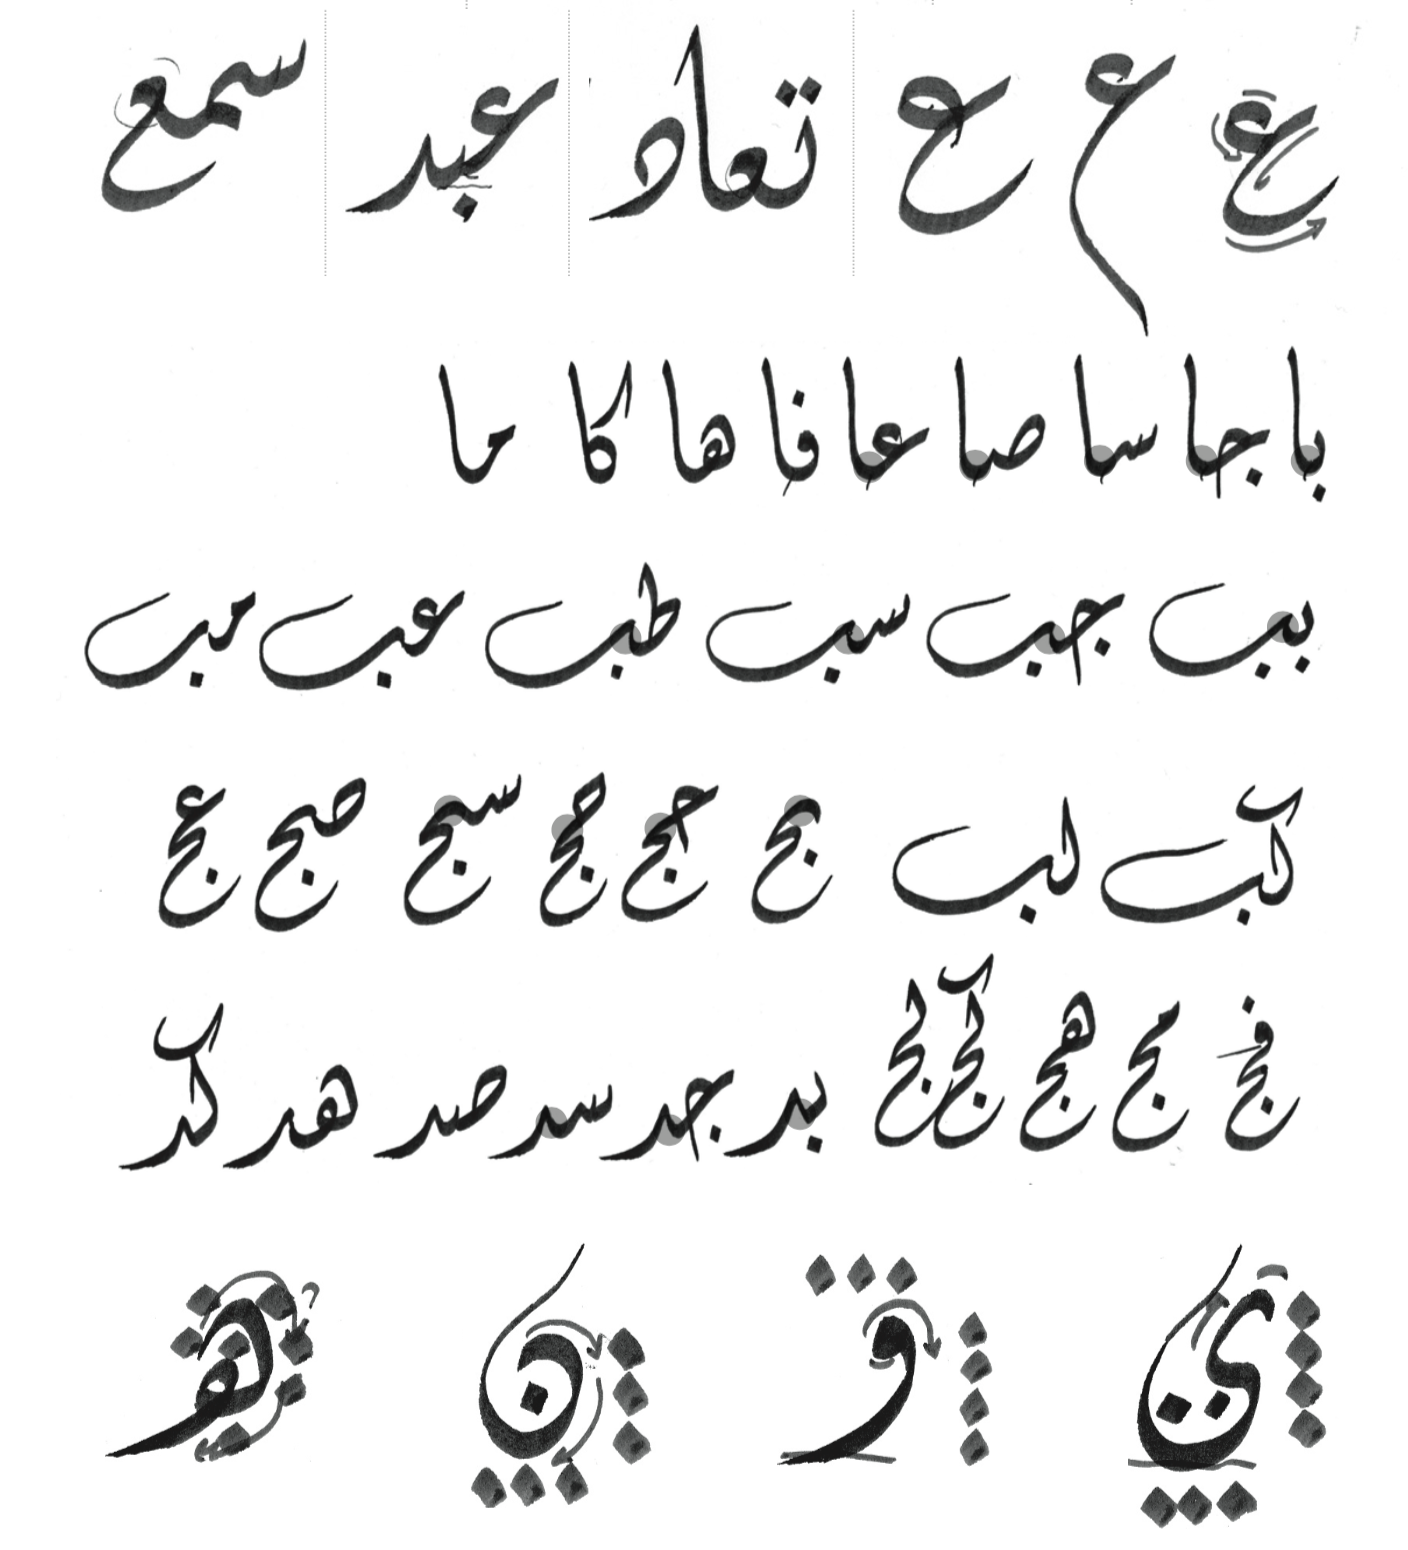 ع ع ع تعاد عبد سمع
با جا سا صا عا فا ها كا ما
ببب جبب سبب طبب عبب مبب
كبب لبب بج حج حج سبج صج عج
فج مج هج كج لج بد جد سد صد هد كد
ي و ن هو